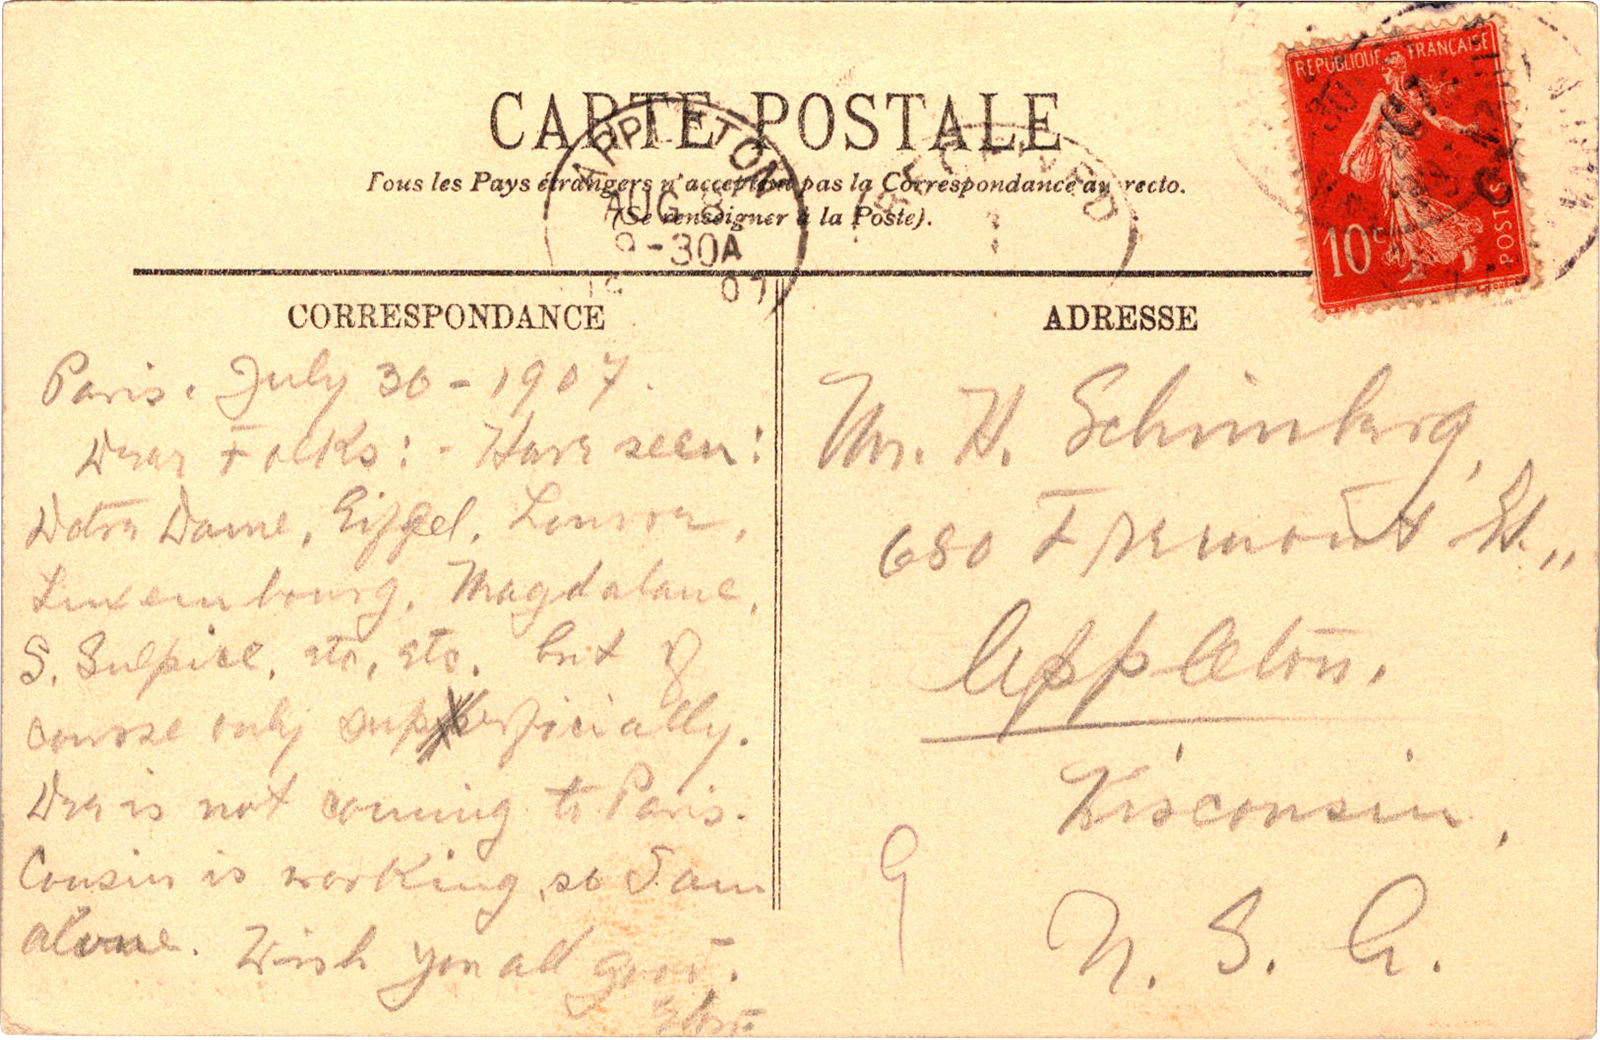 CARTE POSTALE
Tous les Pays étrangers n'acceptent pas la Correspondance au recto.
(Se renseigner à la Poste).
REPUBLIQUE FRANÇAISE
10c
POSTES
APPLETON
AUG 8
9-30A
07
RECEIVED
CORRESPONDANCE
ADRESSE
Paris. July 30-1907.
Dear Folks:- Have seen:
Notre Dame, Eiffel, Louvre,
Luxembourg, Magdalane,
S. Sulpice, etc, etc. but of
course only superficially.
is not coming to Paris.
Cousin is working, so I am
alone. Wish you all good.
Mr. H. Schimberg,
680 Fremont St.,
Appleton,
Wisconsin,
U. S. A.